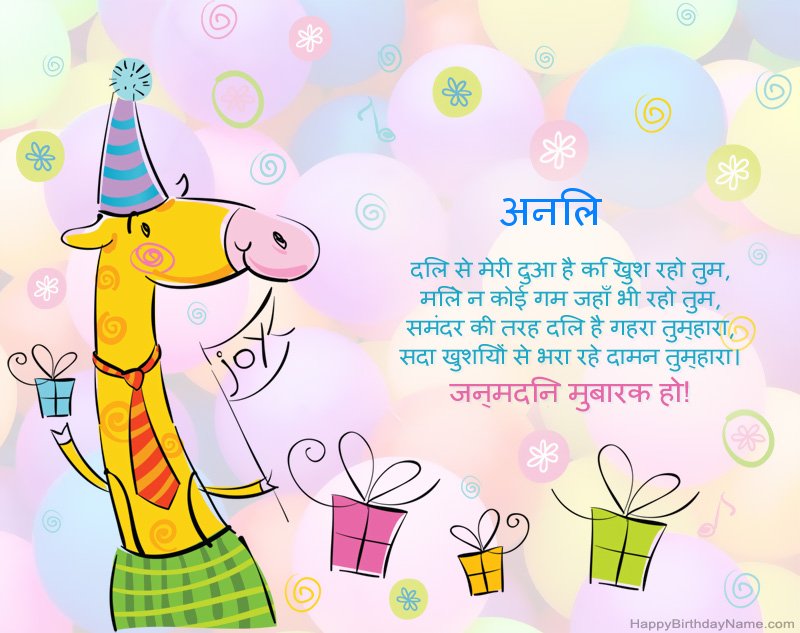 अनलि
दलि से मेरी दुआ है कि खुश रहो तुम,
मलिे न कोई गम जहाँ भी रहो तुम,
समंदर की तरह दलि है गहरा तुम्‌हारा,
सदा खुशयिों से भरा रहे दामन तुम्‌हारा।
जन्‌मदनि मुबारक हो!
joy
HappyBirthdayName.com